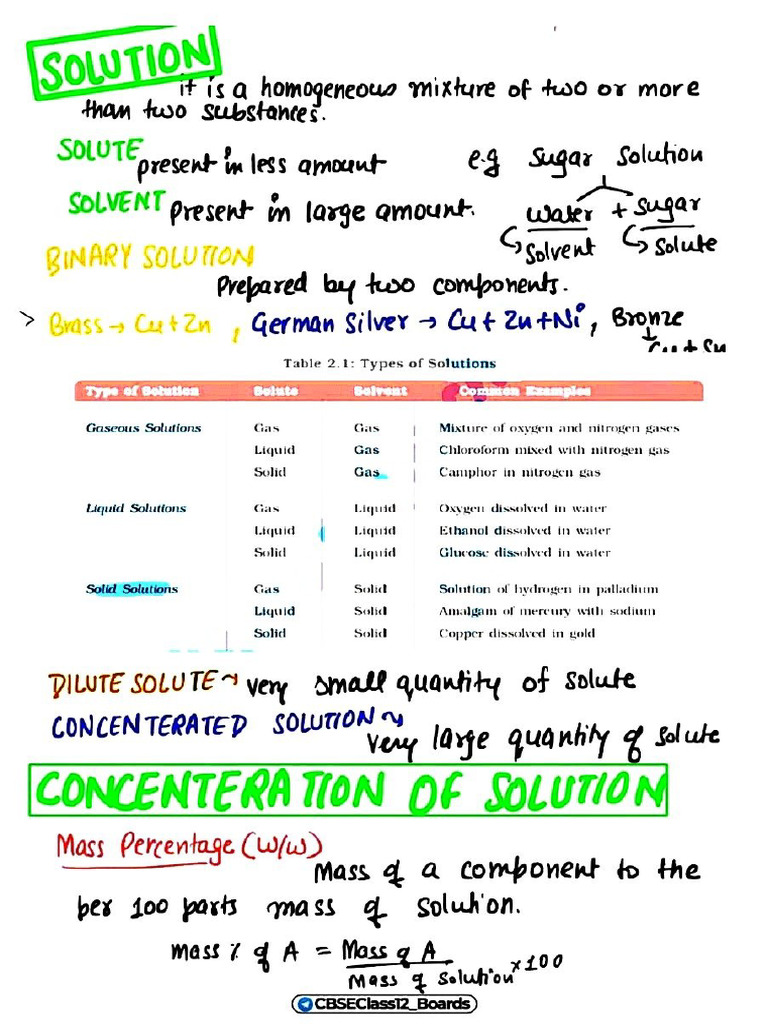 SOLUTION
it is a homogeneous mixture of two or more
than two substances.
SOLUTE present in less amount
e.g Sugar Solution
SOLVENT present in large amount.
water + Sugar
Solvent Solute
BINARY SOLUTION
Prepared by two components.
> Brass → Cu+Zn, German Silver → Cu+Zn+Ni, Bronze
Cu+Sn
Table 2.1: Types of Solutions
Type of Solution Solute Solvent Common Examples
Gaseous Solutions Gas Gas Mixture of oxygen and nitrogen gases
Liquid Gas Chloroform mixed with nitrogen gas
Solid Gas Camphor in nitrogen gas
Liquid Solutions Gas Liquid Oxygen dissolved in water
Liquid Liquid Ethanol dissolved in water
Solid Liquid Glucose dissolved in water
Solid Solutions Gas Solid Solution of hydrogen in palladium
Liquid Solid Amalgam of mercury with sodium
Solid Solid Copper dissolved in gold
DILUTE SOLUTE → very small quantity of solute
CONCENTERATED SOLUTION →
very large quantity of solute
CONCENTERATION OF SOLUTION
Mass Percentage (W/W)
Mass of a component to the
per 100 parts mass of solution.
mass % of A = Mass of A
Mass of solution × 100
CBSEClass12_Boards